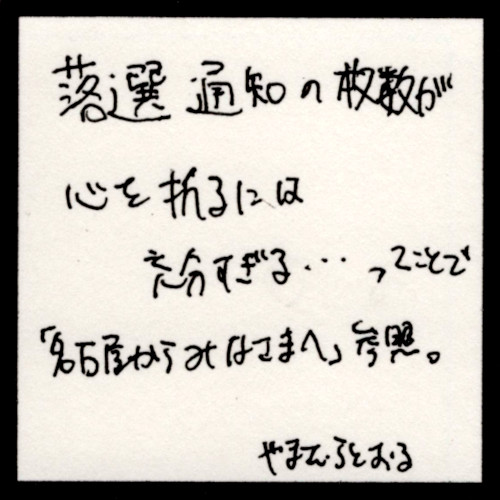 落選通知の枚数が
心を折るには
充分すぎる…ってことで
「名古屋からみなさまへ」参照。